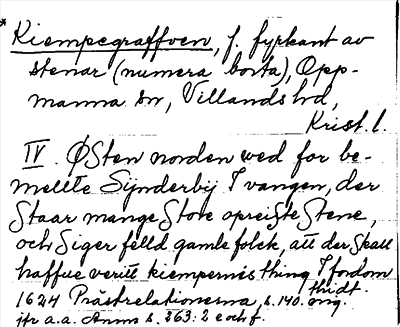 *
Kiempegraffven, f. fyrkant av
stenar (numera borta), Opp-
manna sn, Villands hd,
Krist. l.
IV. ØSten norden wed for be-
mellte Sÿnderbÿ I vangen, der
Staar mange Store opreiste Stene,
och Siger félld gamle folck, att der Skall
haffue veritt kiempernis thing I fordom
thidt.
1624 Prästrelationerna, s. 140. orig.
jfr a.a. Anm s. 363: 2 och f.